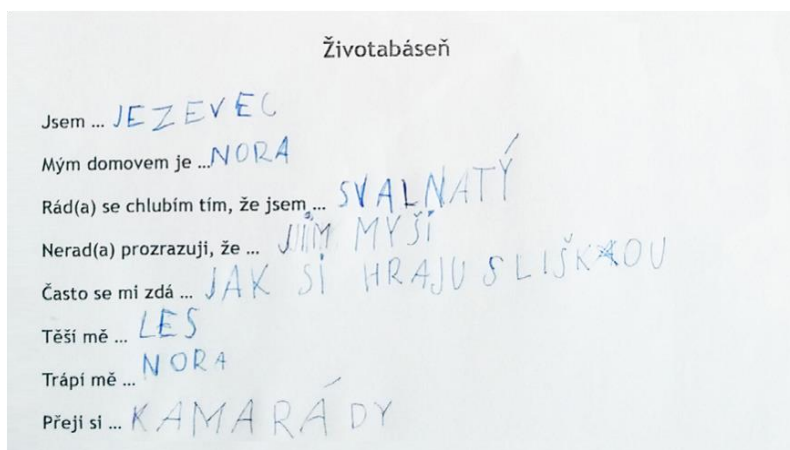 Životabáseň
Jsem ... JEZEVEC
Mým domovem je ...NORA
Rád(a) se chlubím tím, že jsem ... SVALNATÝ
Nerad(a) prozrazuji, že ... JÍM MYŠI
Často se mi zdá ... JAK SI HRAJU S LIŠKOU
Těší mě ... LES
Trápí mě ... NORA
Přeji si ... KAMARÁDY